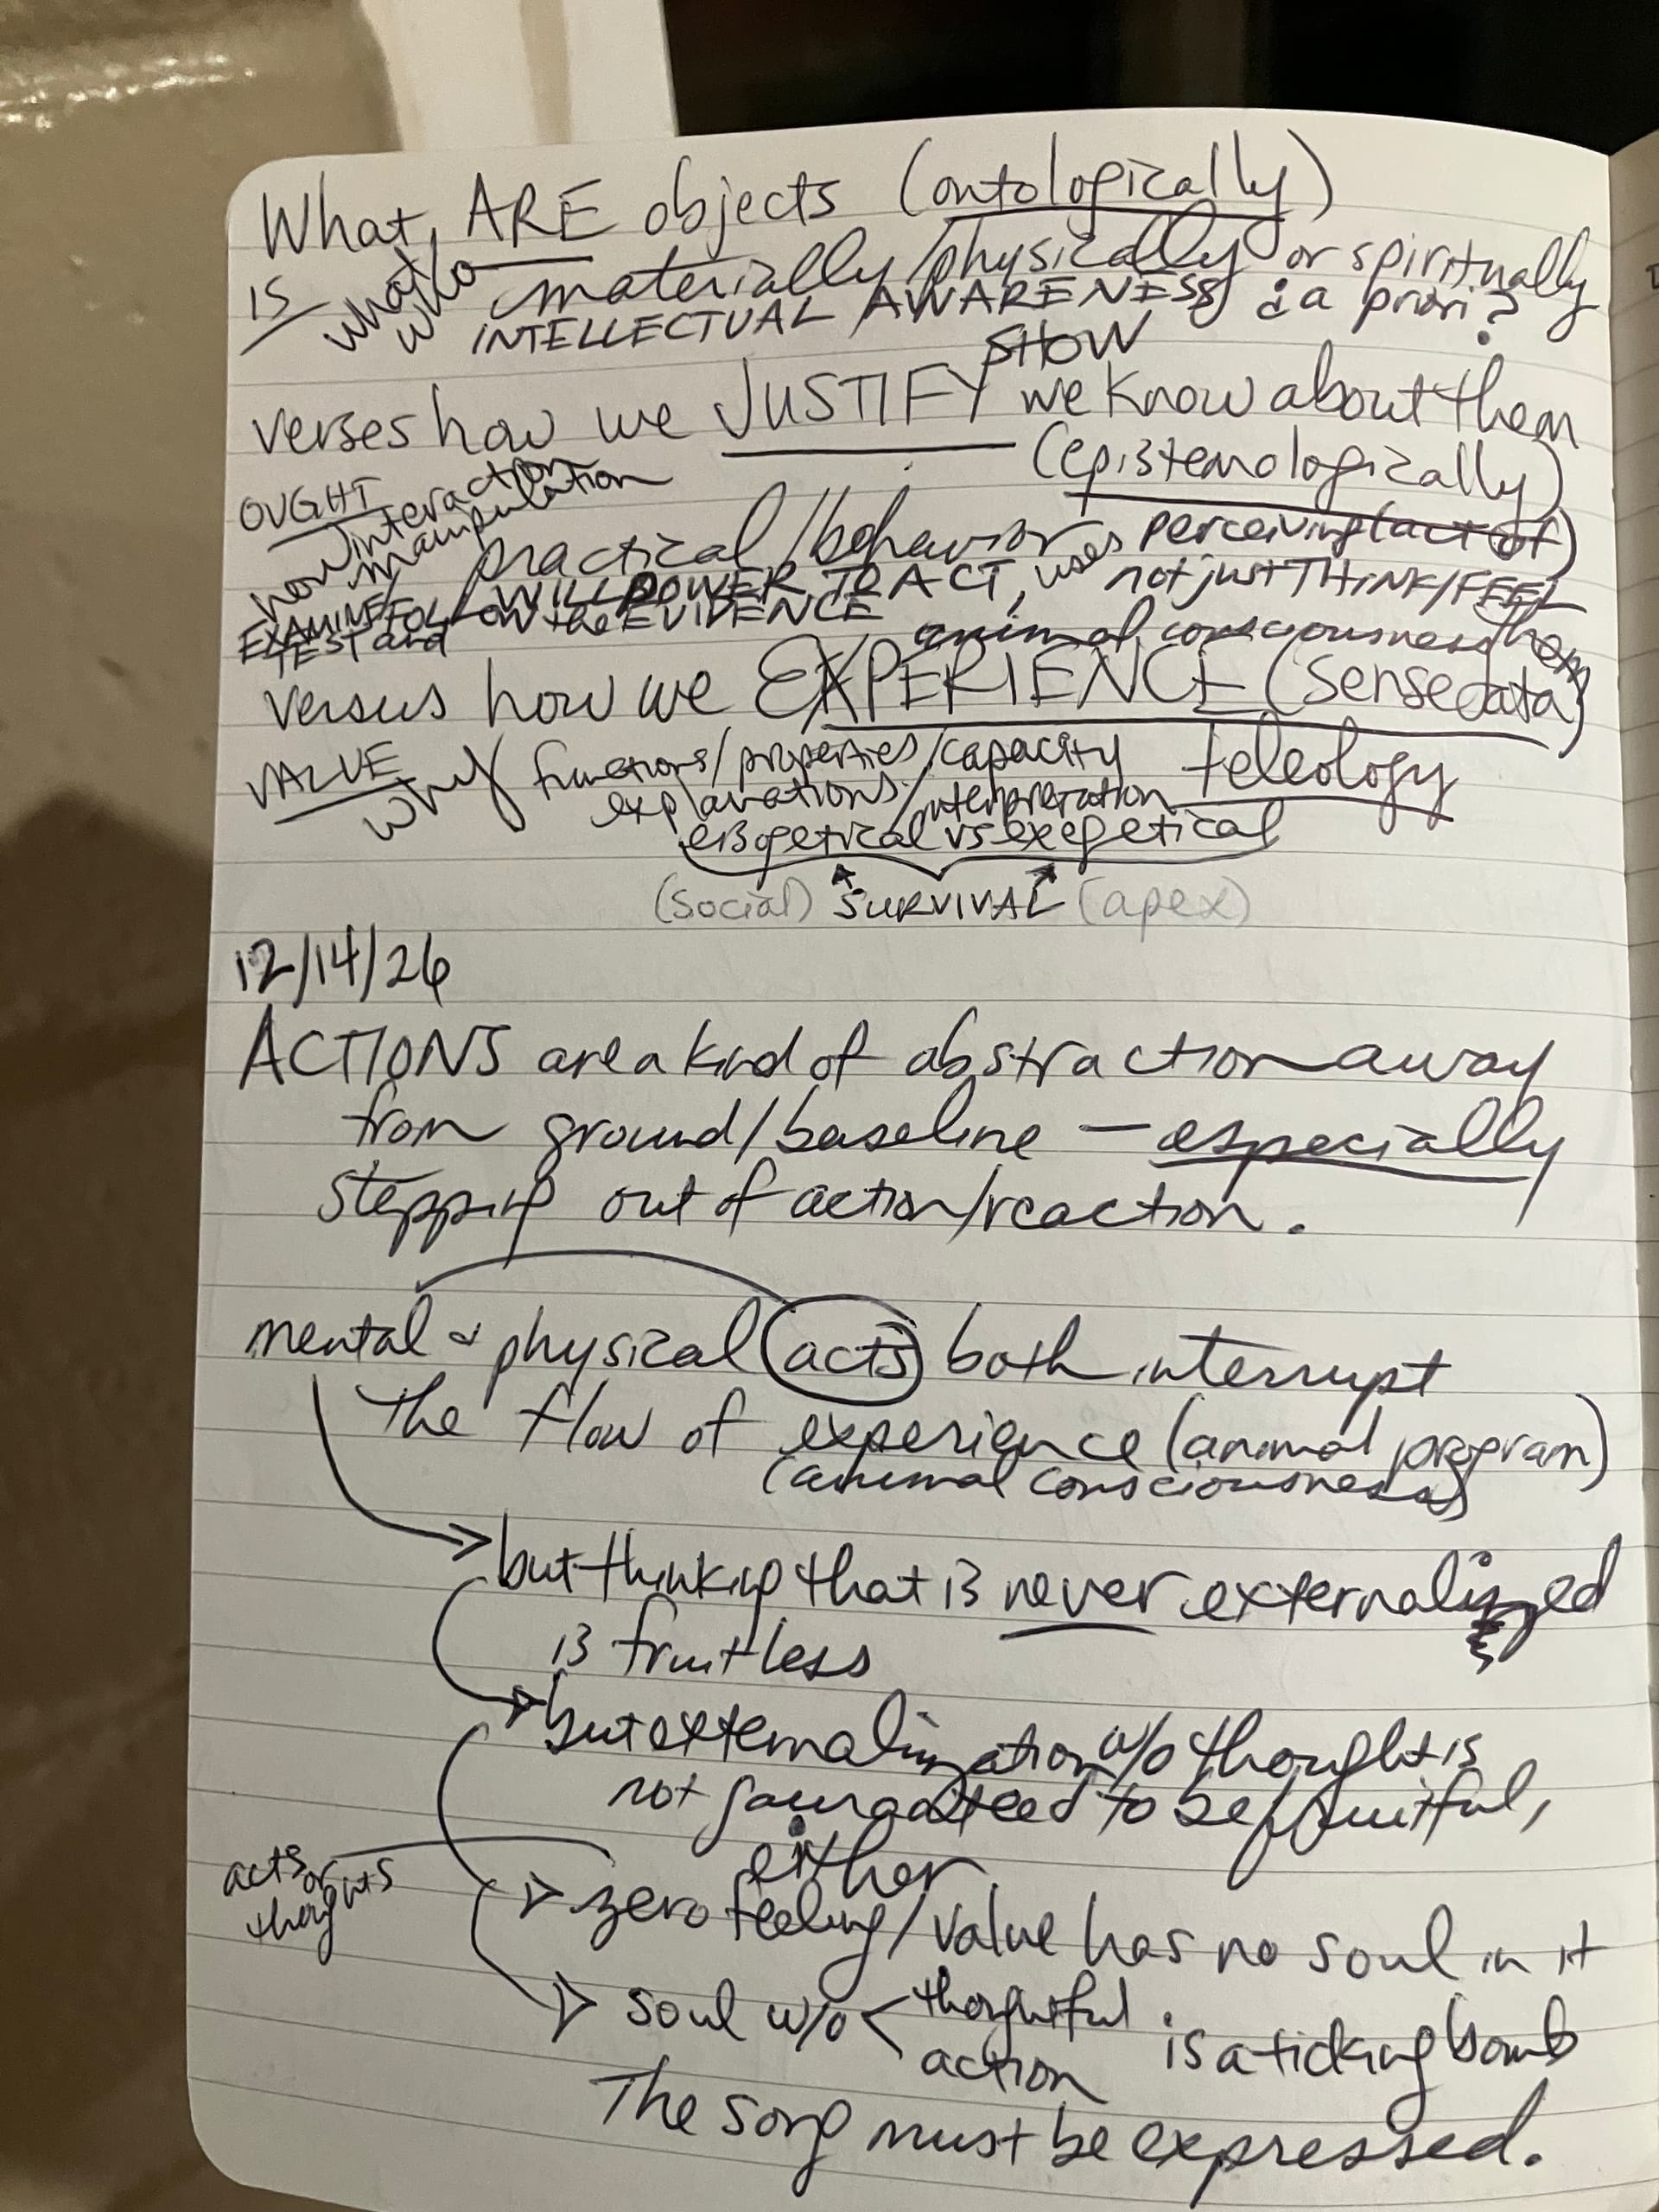 What ARE objects (ontologically)
IS what/who materially/physically or spiritually
INTELLECTUAL AWARENESS ¿a priori?
SHOW
verses how we JUSTIFY we know about them
(epistemologically)
OUGHT
how interaction
manipulation
practical/behavior uses perceiving (act of)
WILLPOWER TO ACT, not just THINK/FEEL
EXAMINE/FOLLOW the EVIDENCE
TEST and
animal consciousness
versus how we EXPERIENCE (sense data) them
VALUE
why functions/properties/capacity teleology
explanations/interpretation
eisgetical vs exegetical
(social) SURVIVAL (apex)
12/14/26
ACTIONS are a kind of abstraction away
from ground/baseline — especially
stepping out of action/reaction.
mental & physical acts both interrupt
the flow of experience (animal program)
(animal consciousness)
but thinking that is never externalized
is fruitless
but externalization w/o thought is
not gauranteed to be fruitful,
either
acts or
thoughts
zero feeling/value has no soul in it
soul w/o < thoughtful
action is a ticking bomb
The song must be expressed.